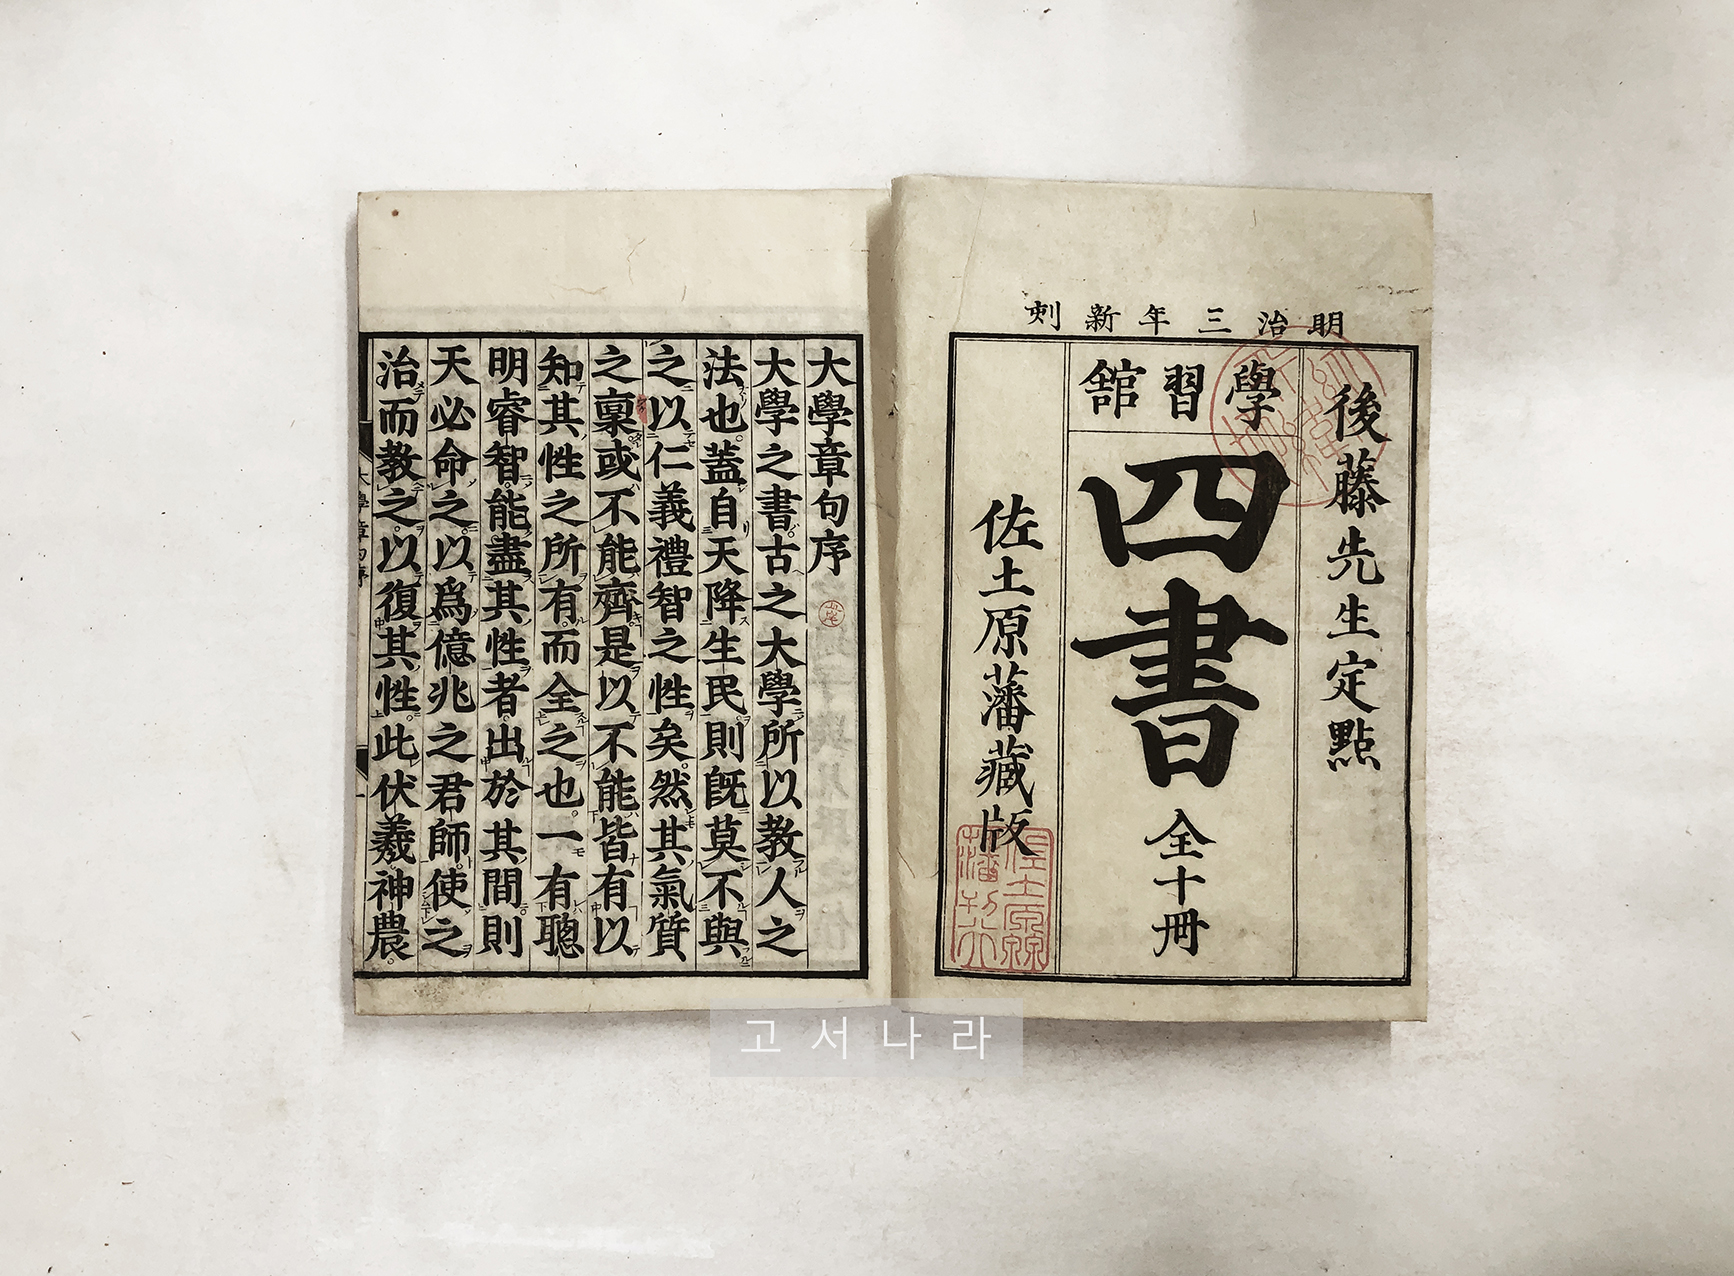 明治三年新刻
後藤先生定點
學習館
四書
全十冊
佐土原藩藏版
大學章句序
大學之書古之大學所以教人之
法也蓋自天降生民則既莫不與
之以仁義禮智之性矣然其氣質
之稟或不能齊是以不能皆有以
知其性之所有而全之也一有聰
明睿智能盡其性者出於其間則
天必命之以爲億兆之君師使之
治而教之以復其性此伏羲神農
고서나라